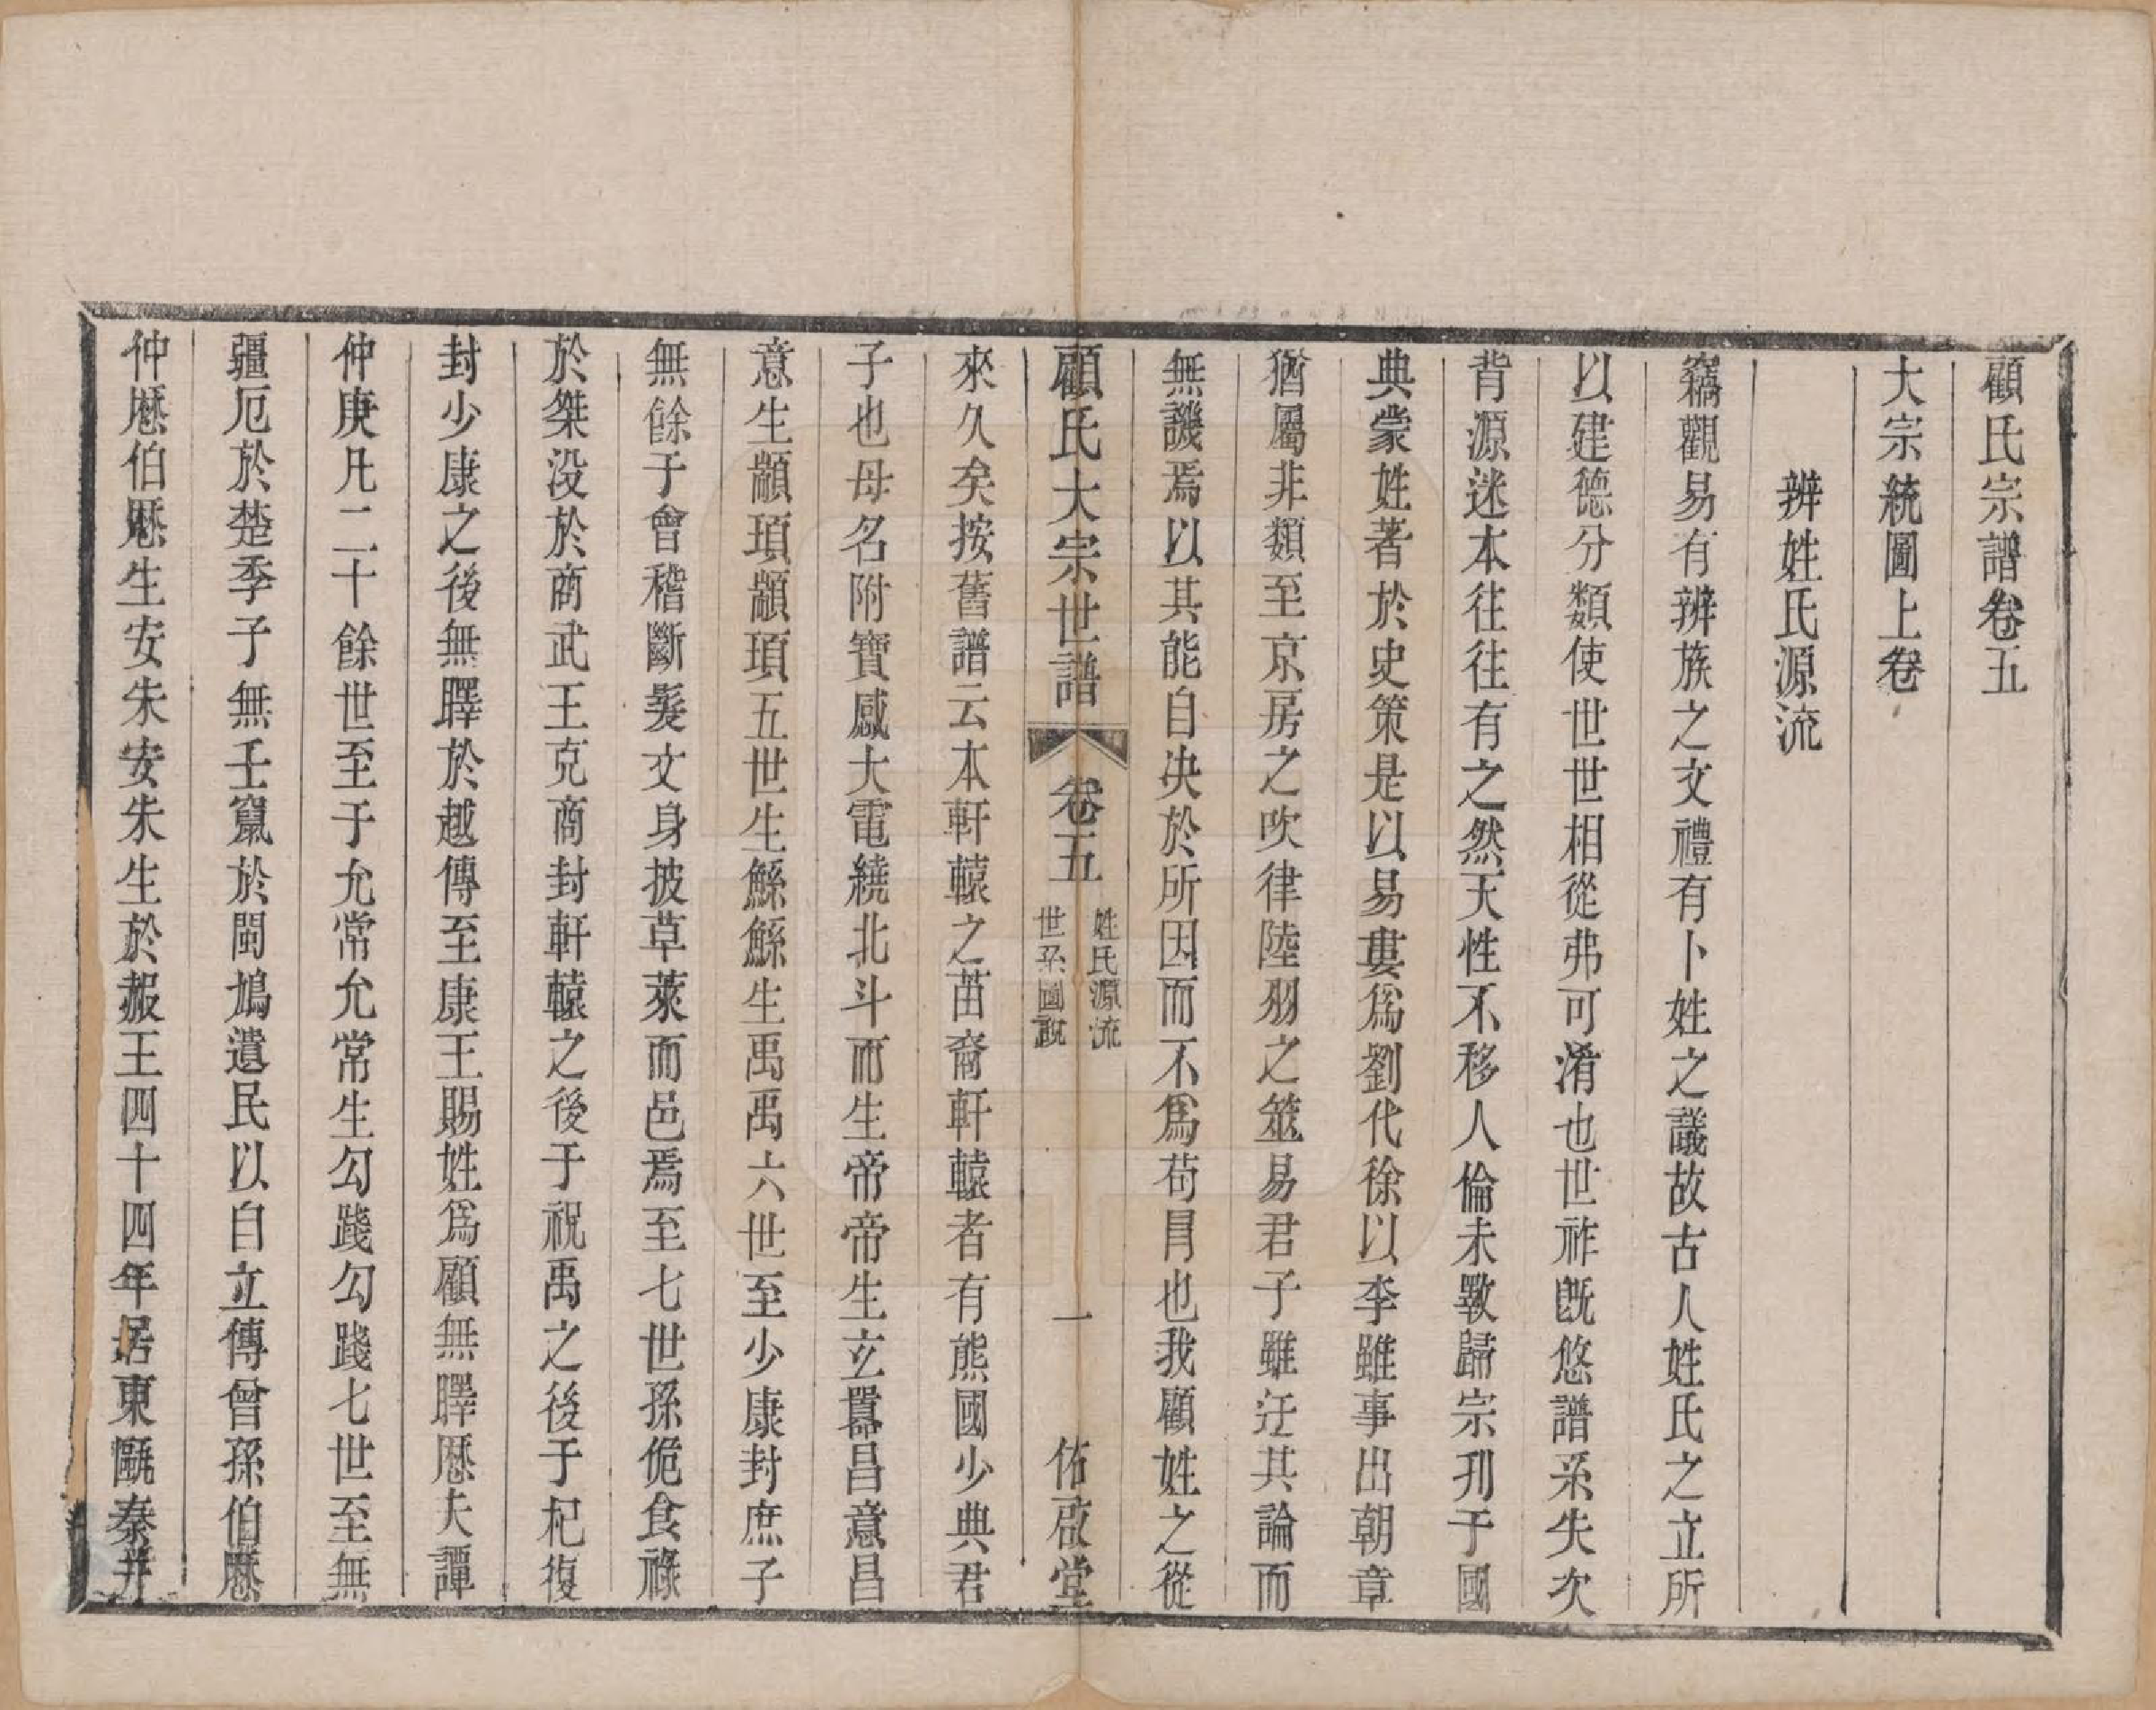 顧氏宗譜卷五
大宗統圖上卷
辨姓氏源流
竊觀易有辨族之文禮有卜姓之議故古人姓氏之立所
以建德分類使世世相從弗可淆也世祚既悠譜系失次
背源迷本往往有之然天性不移人倫未斁歸宗刋于國
典蒙姓著於史策是以易婁爲劉代徐以李雖事出朝章
猶屬非類至京房之吹律陸羽之筮易君子雖迂其論而
無譏焉以其能自決於所因而不爲苟冐也我顧姓之從
顧氏大宗世譜
卷五
姓氏源流
世系圖說
一
佑啟堂
來久矣按舊譜云本軒轅之苗裔軒轅者有熊國少典君
子也母名附寶感大電繞北斗而生帝帝生玄囂昌意昌
意生顓頊顓頊五世生鯀鯀生禹禹六世至少康封庶子
無餘于會稽斷髮文身披草萊而邑焉至七世孫佹食祿
於桀没於商武王克商封軒轅之後于祝禹之後于杞復
封少康之後無驛於越傳至康王賜姓爲顧無驛厯夫譚
仲庚凡二十餘世至于允常允常生勾踐勾踐七世至無
疆厄於楚季子無壬竄於閩鳩遺民以自立傳曾孫伯厯
仲厯伯厯生安朱安朱生於赧王四十四年居東甌秦并